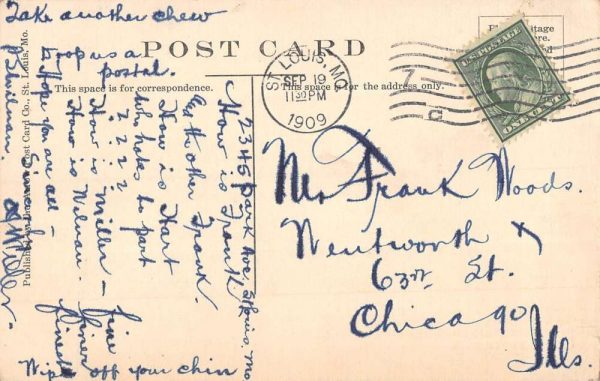 Take another chew
Drop us a
postal.
POST CARD
This space is for correspondence.
This space is for the address only.
ST. LOUIS, MO.
SEP 19
11 30 PM
1909
U.S. POSTAGE
ONE CENT
2345 Park Ave. St Louis, Mo
How is Frank
& the other Frank.
How is Hart
Whats to part
? ? ? ?
How is Miller – fine
How is Wilman. finer
finest
Hope you are all –
Sincerely
Miller –
Wipe off your chin
Mr Frank Woods.
Wentworth &
63rd St.
Chicago
Ills.
Post Card Co., St. Louis, Mo.